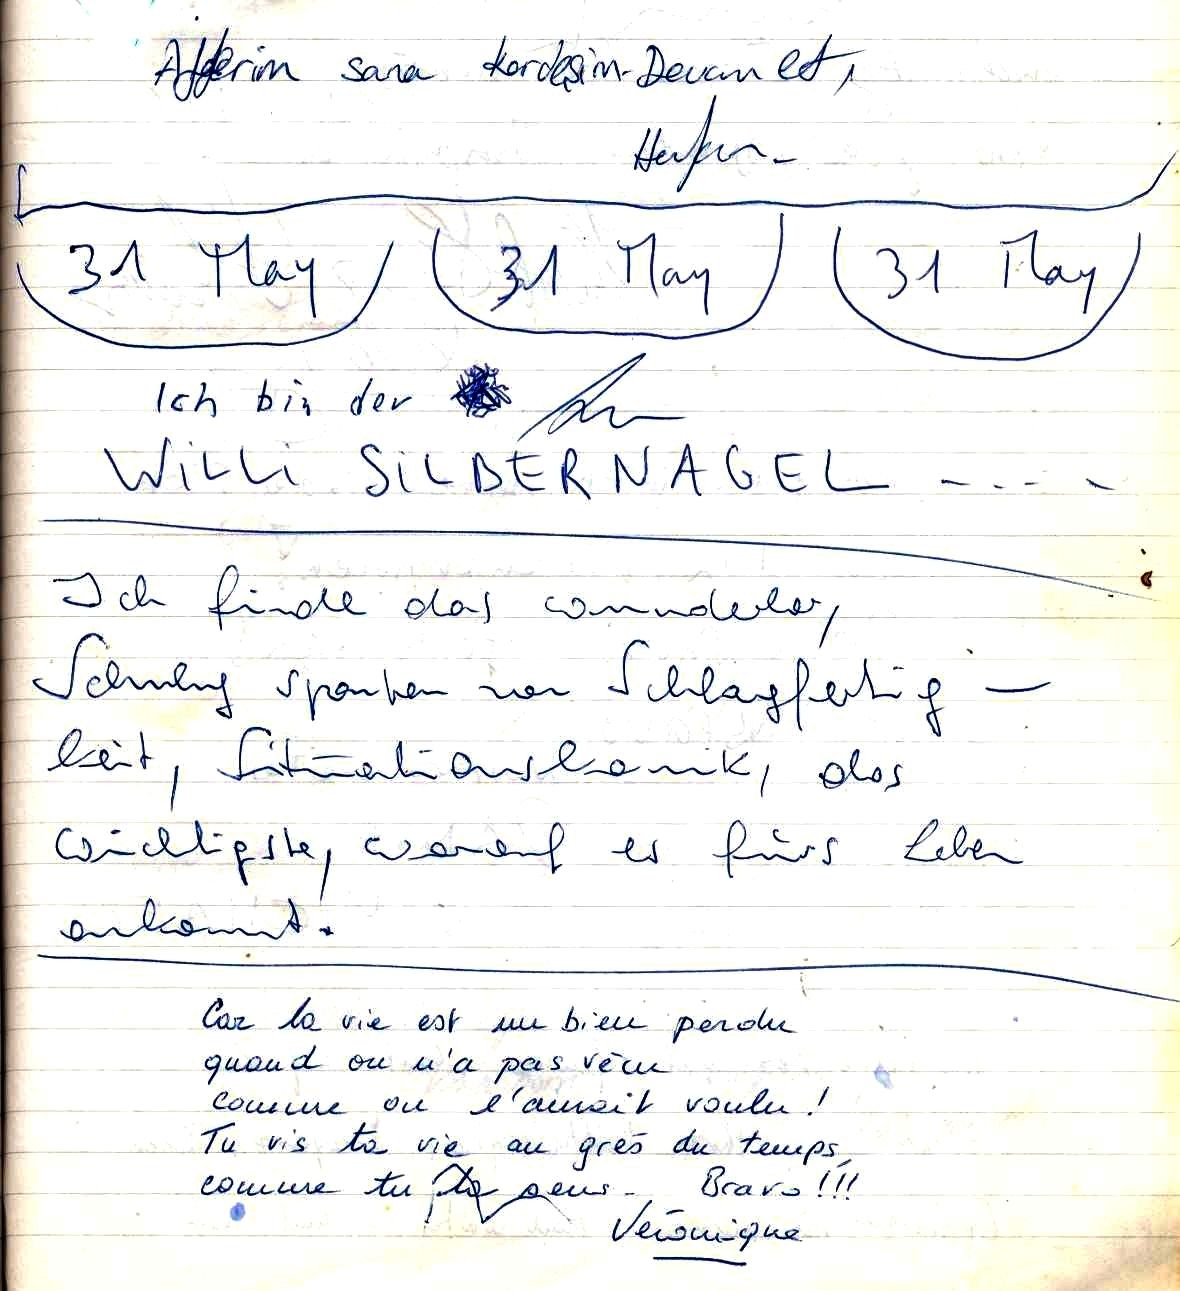 Afferim sana kardeşim. Devam et,
31 May 31 May 31 May
Ich bin der
WiLLi SiLBERNAGEL - - - -
Ich finde das wunderbar,
spontan von Schlagfertig –
keit, Situationskomik, das
wichtigste, worauf es fürs Leben
ankommt.
Car la vie est un bien perdu
quand on n'a pas vécu
comme on l'aurait voulu !
Tu vis ta vie au grès du temps,
comme tu la sens. Bravo !!!
Véronique